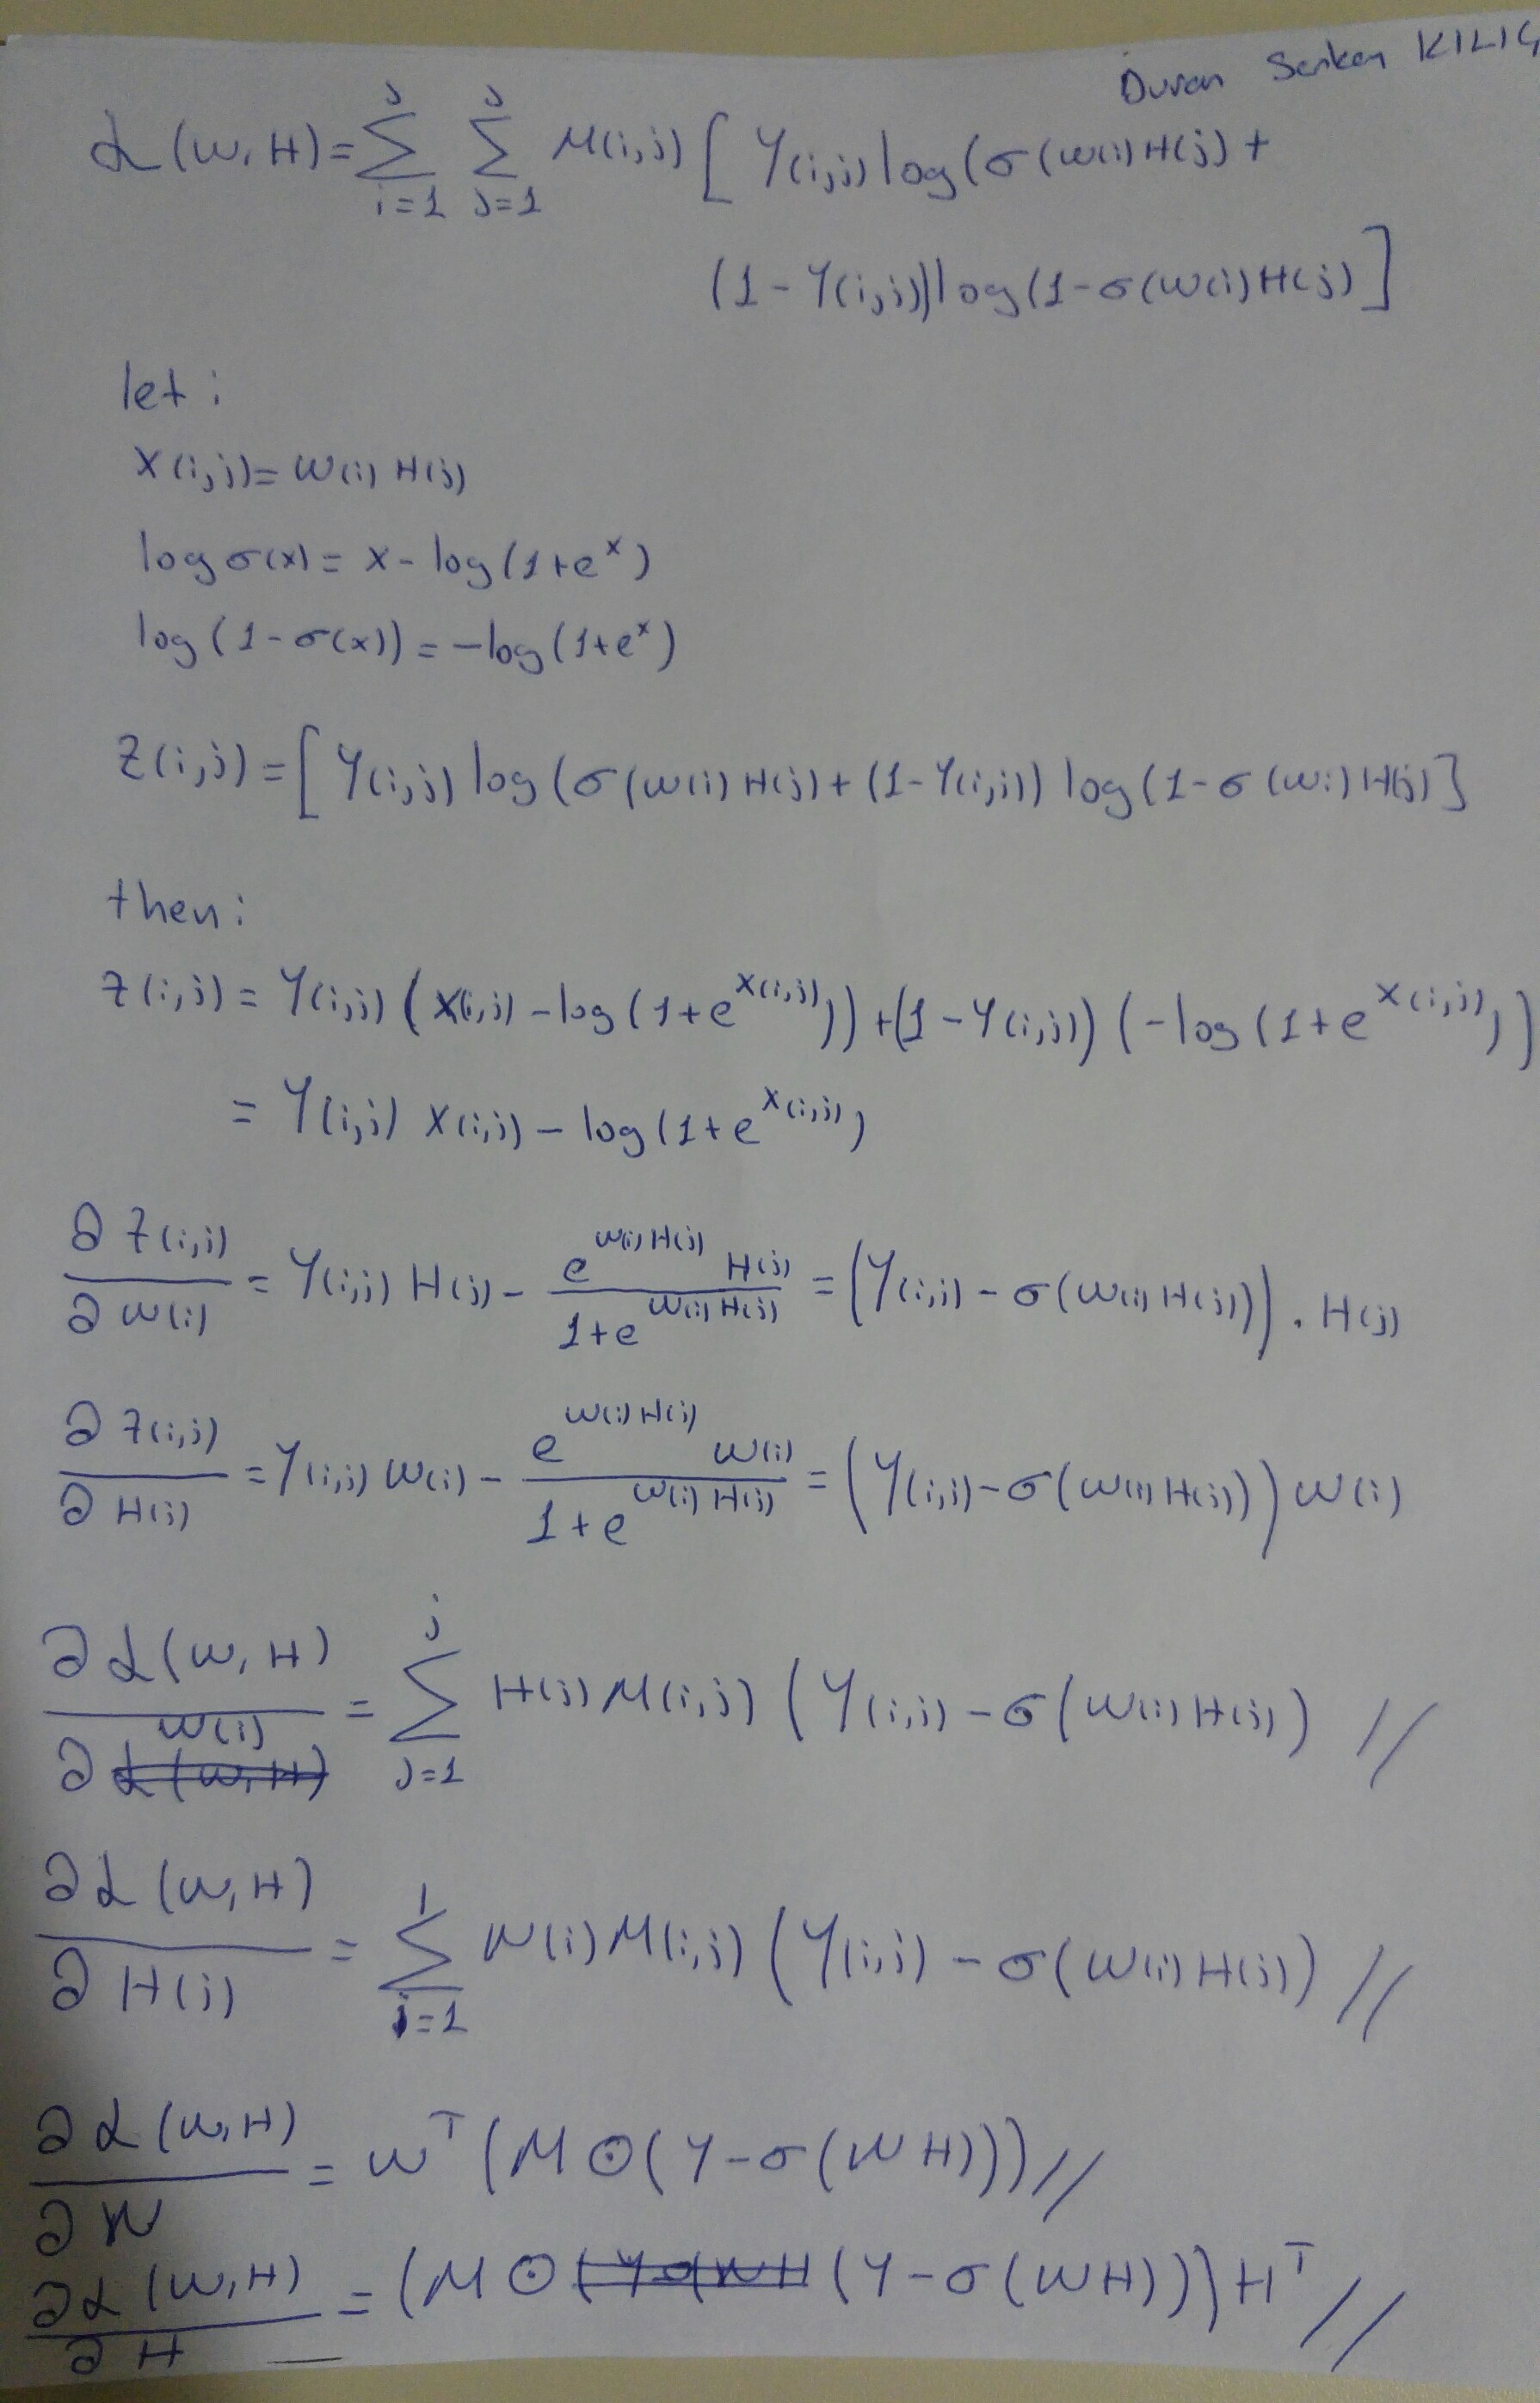 Duran Serkan KILIÇ
ℒ(W,H)=∑_{i=1}^{J} ∑_{j=1}^{J} M(i,j)[Y(i,j)log(σ(W(i)H(j)+
(1-Y(i,j))log(1-σ(W(i)H(j)]
let:
X(i,j)=W(i)H(j)
logσ(x)=x-log(1+e^x)
log(1-σ(x))=-log(1+e^x)
Z(i,j)=[Y(i,j)log(σ(W(i)H(j)+(1-Y(i,j))log(1-σ(Wi)H(j)]
then:
Z(i,j)=Y(i,j)(X(i,j)-log(1+e^{X(i,j)}))+(1-Y(i,j))(-log(1+e^{X(i,j)}))
=Y(i,j)X(i,j)-log(1+e^{X(i,j)})
∂Z(i,j)/∂W(i)=Y(i,j)H(j)-e^{W(i)H(j)}H(j)/1+e^{W(i)H(j)}=(Y(i,j)-σ(W(i)H(j))).H(j)
∂Z(i,j)/∂H(j)=Y(i,j)W(i)-e^{W(i)H(j)}W(i)/1+e^{W(i)H(j)}=(Y(i,j)-σ(W(i)H(j)))W(i)
∂ℒ(W,H)/∂W(i)=∑_{j=1}^{j} H(j)M(i,j)(Y(i,j)-σ(W(i)H(j)) //
∂ℒ(W,H)/∂H(j)=∑_{i=1}^{I} W(i)M(i,j)(Y(i,j)-σ(W(i)H(j)) //
∂ℒ(W,H)/∂W=W^T(M⊙(Y-σ(WH)))//
∂ℒ(W,H)/∂H=(M⊙(Y-σ(WH)))H^T//